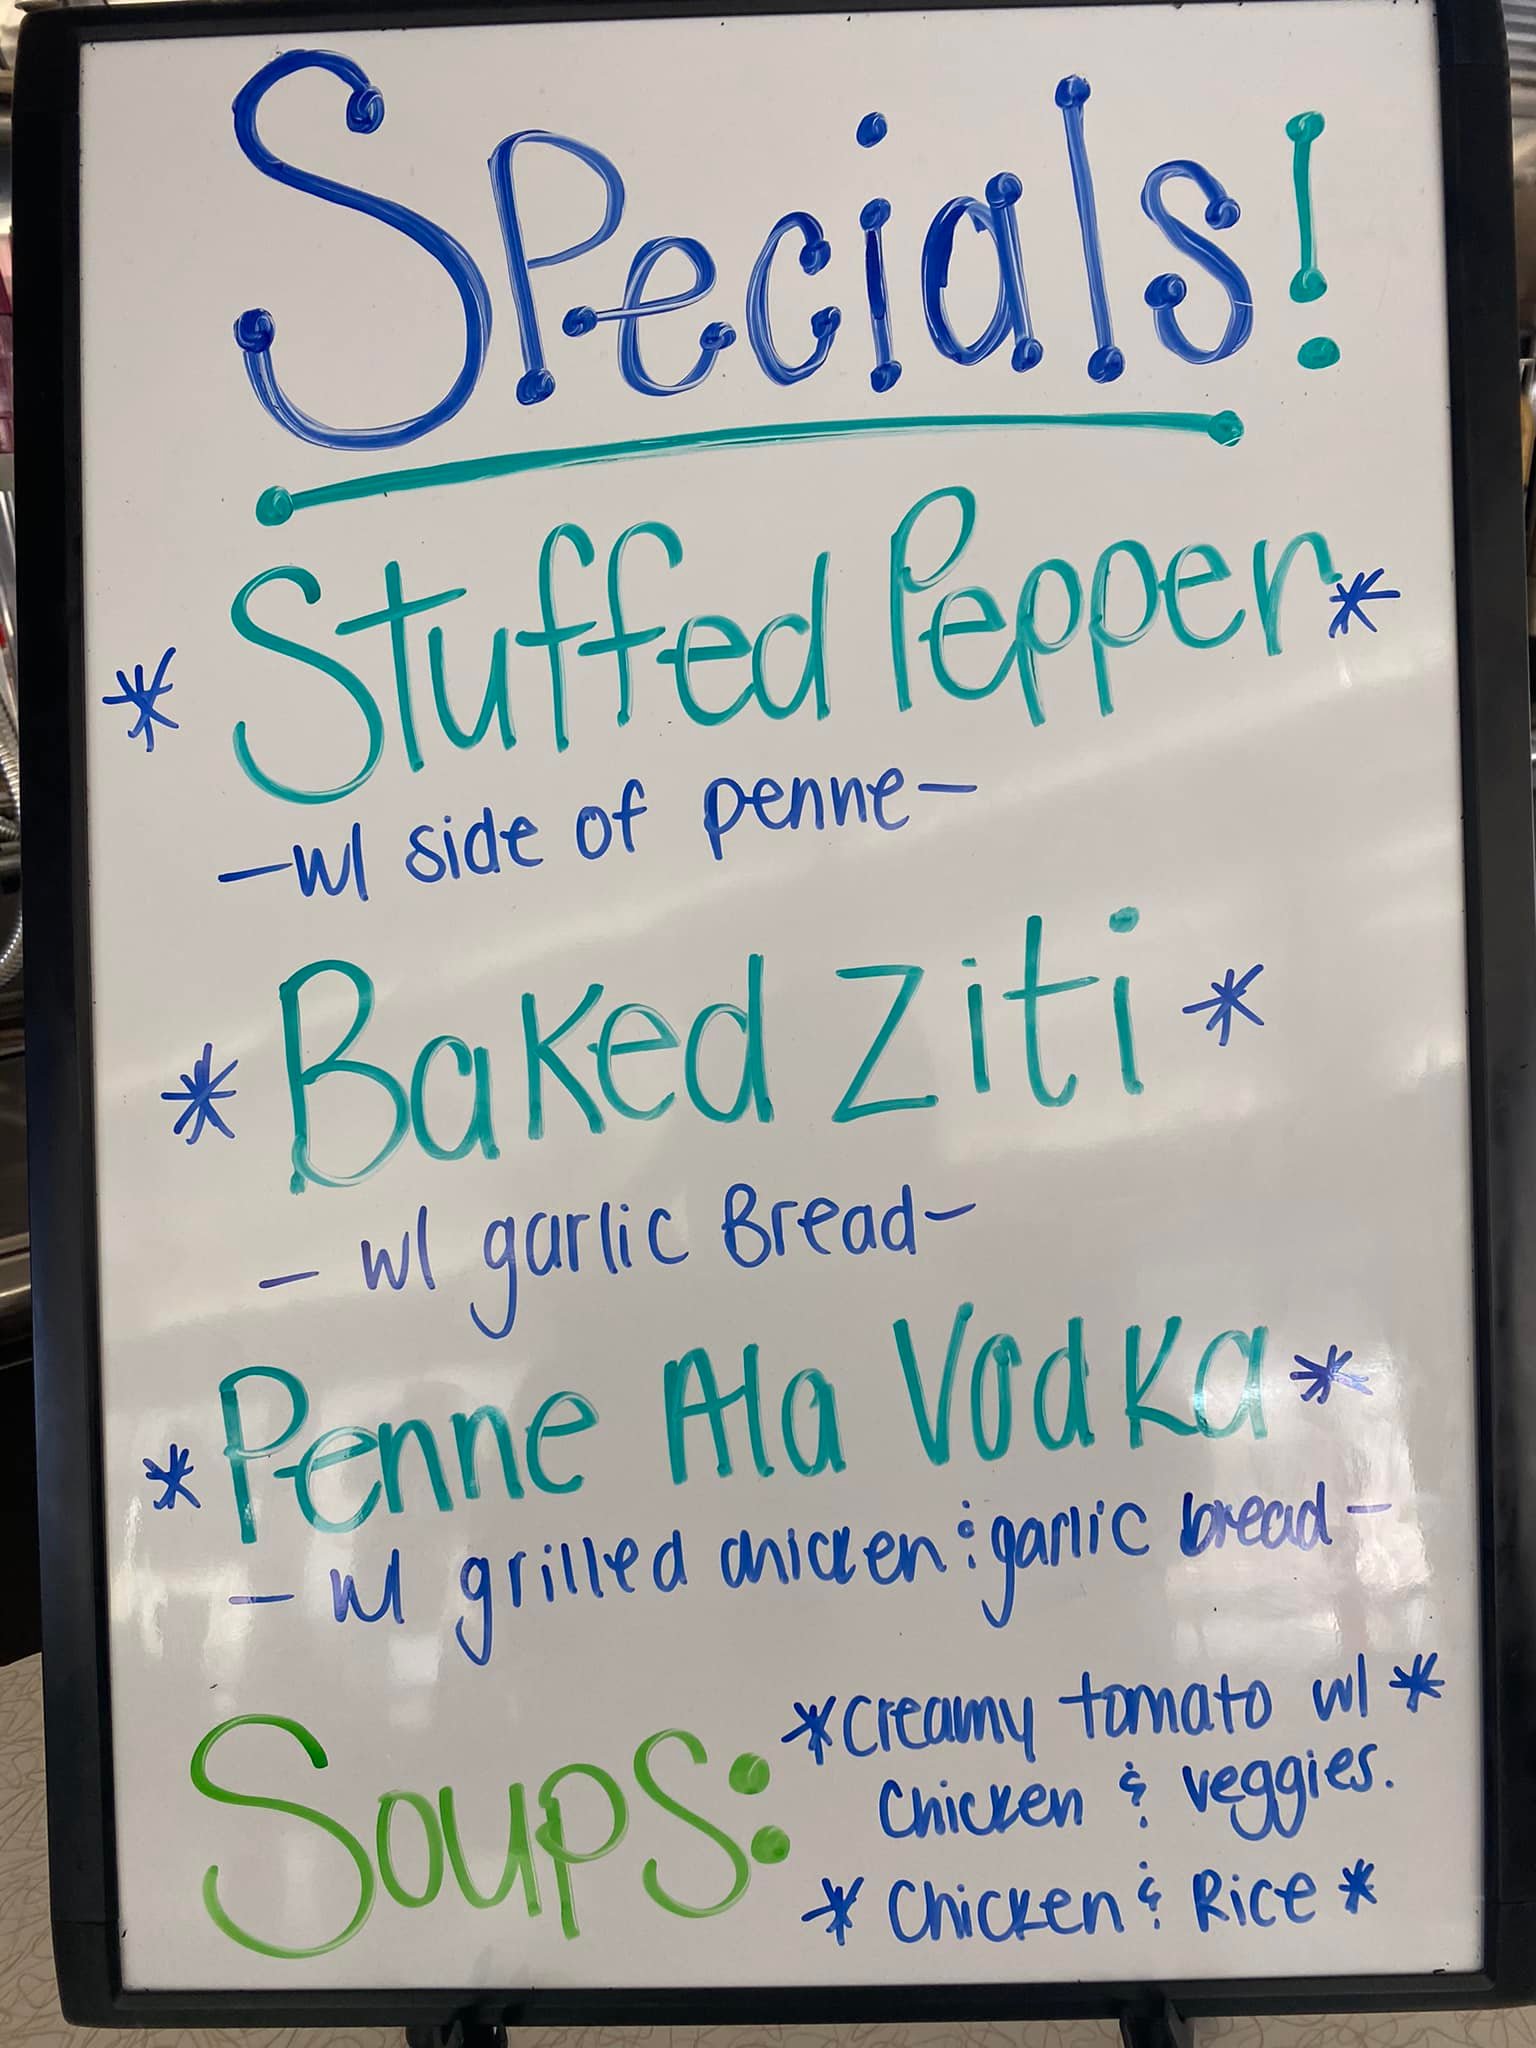 Specials!
* Stuffed Pepper *
- w/ side of penne -
* Baked Ziti *
- w/ garlic Bread -
* Penne Ala Vodka *
- w/ grilled chicken & garlic bread -
Soups:
* Creamy tomato w/ *
Chicken & veggies.
* Chicken & Rice *